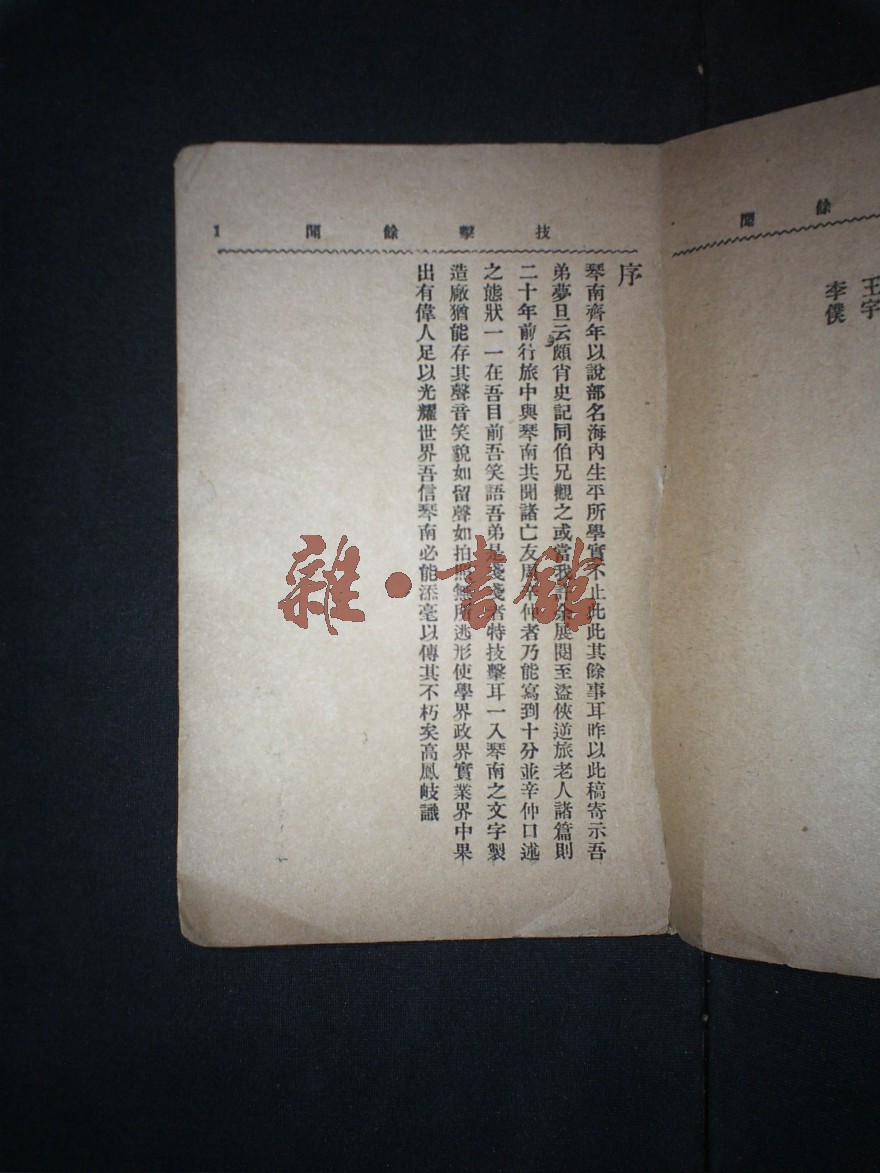 餘聞
王字
李僕
技擊餘聞
1
序
琴南齊年以說部名海內生平所學實不止此此其餘事耳昨以此稿寄示吾
弟夢旦云頗肖史記同伯兄觀之或當我許余展閱至盜俠逆旅老人諸篇則
二十年前行旅中與琴南共聞諸亡友周辛仲者乃能寫到十分並辛仲口述
之態狀一一在吾目前吾笑語吾弟是淺淺者特技擊耳一入琴南之文字製
造廠猶能存其聲音笑貌如留聲如拍照無所逃形使學界政界實業界中果
出有偉人足以光耀世界吾信琴南必能添毫以傳其不朽矣高鳳岐識
雜·書館